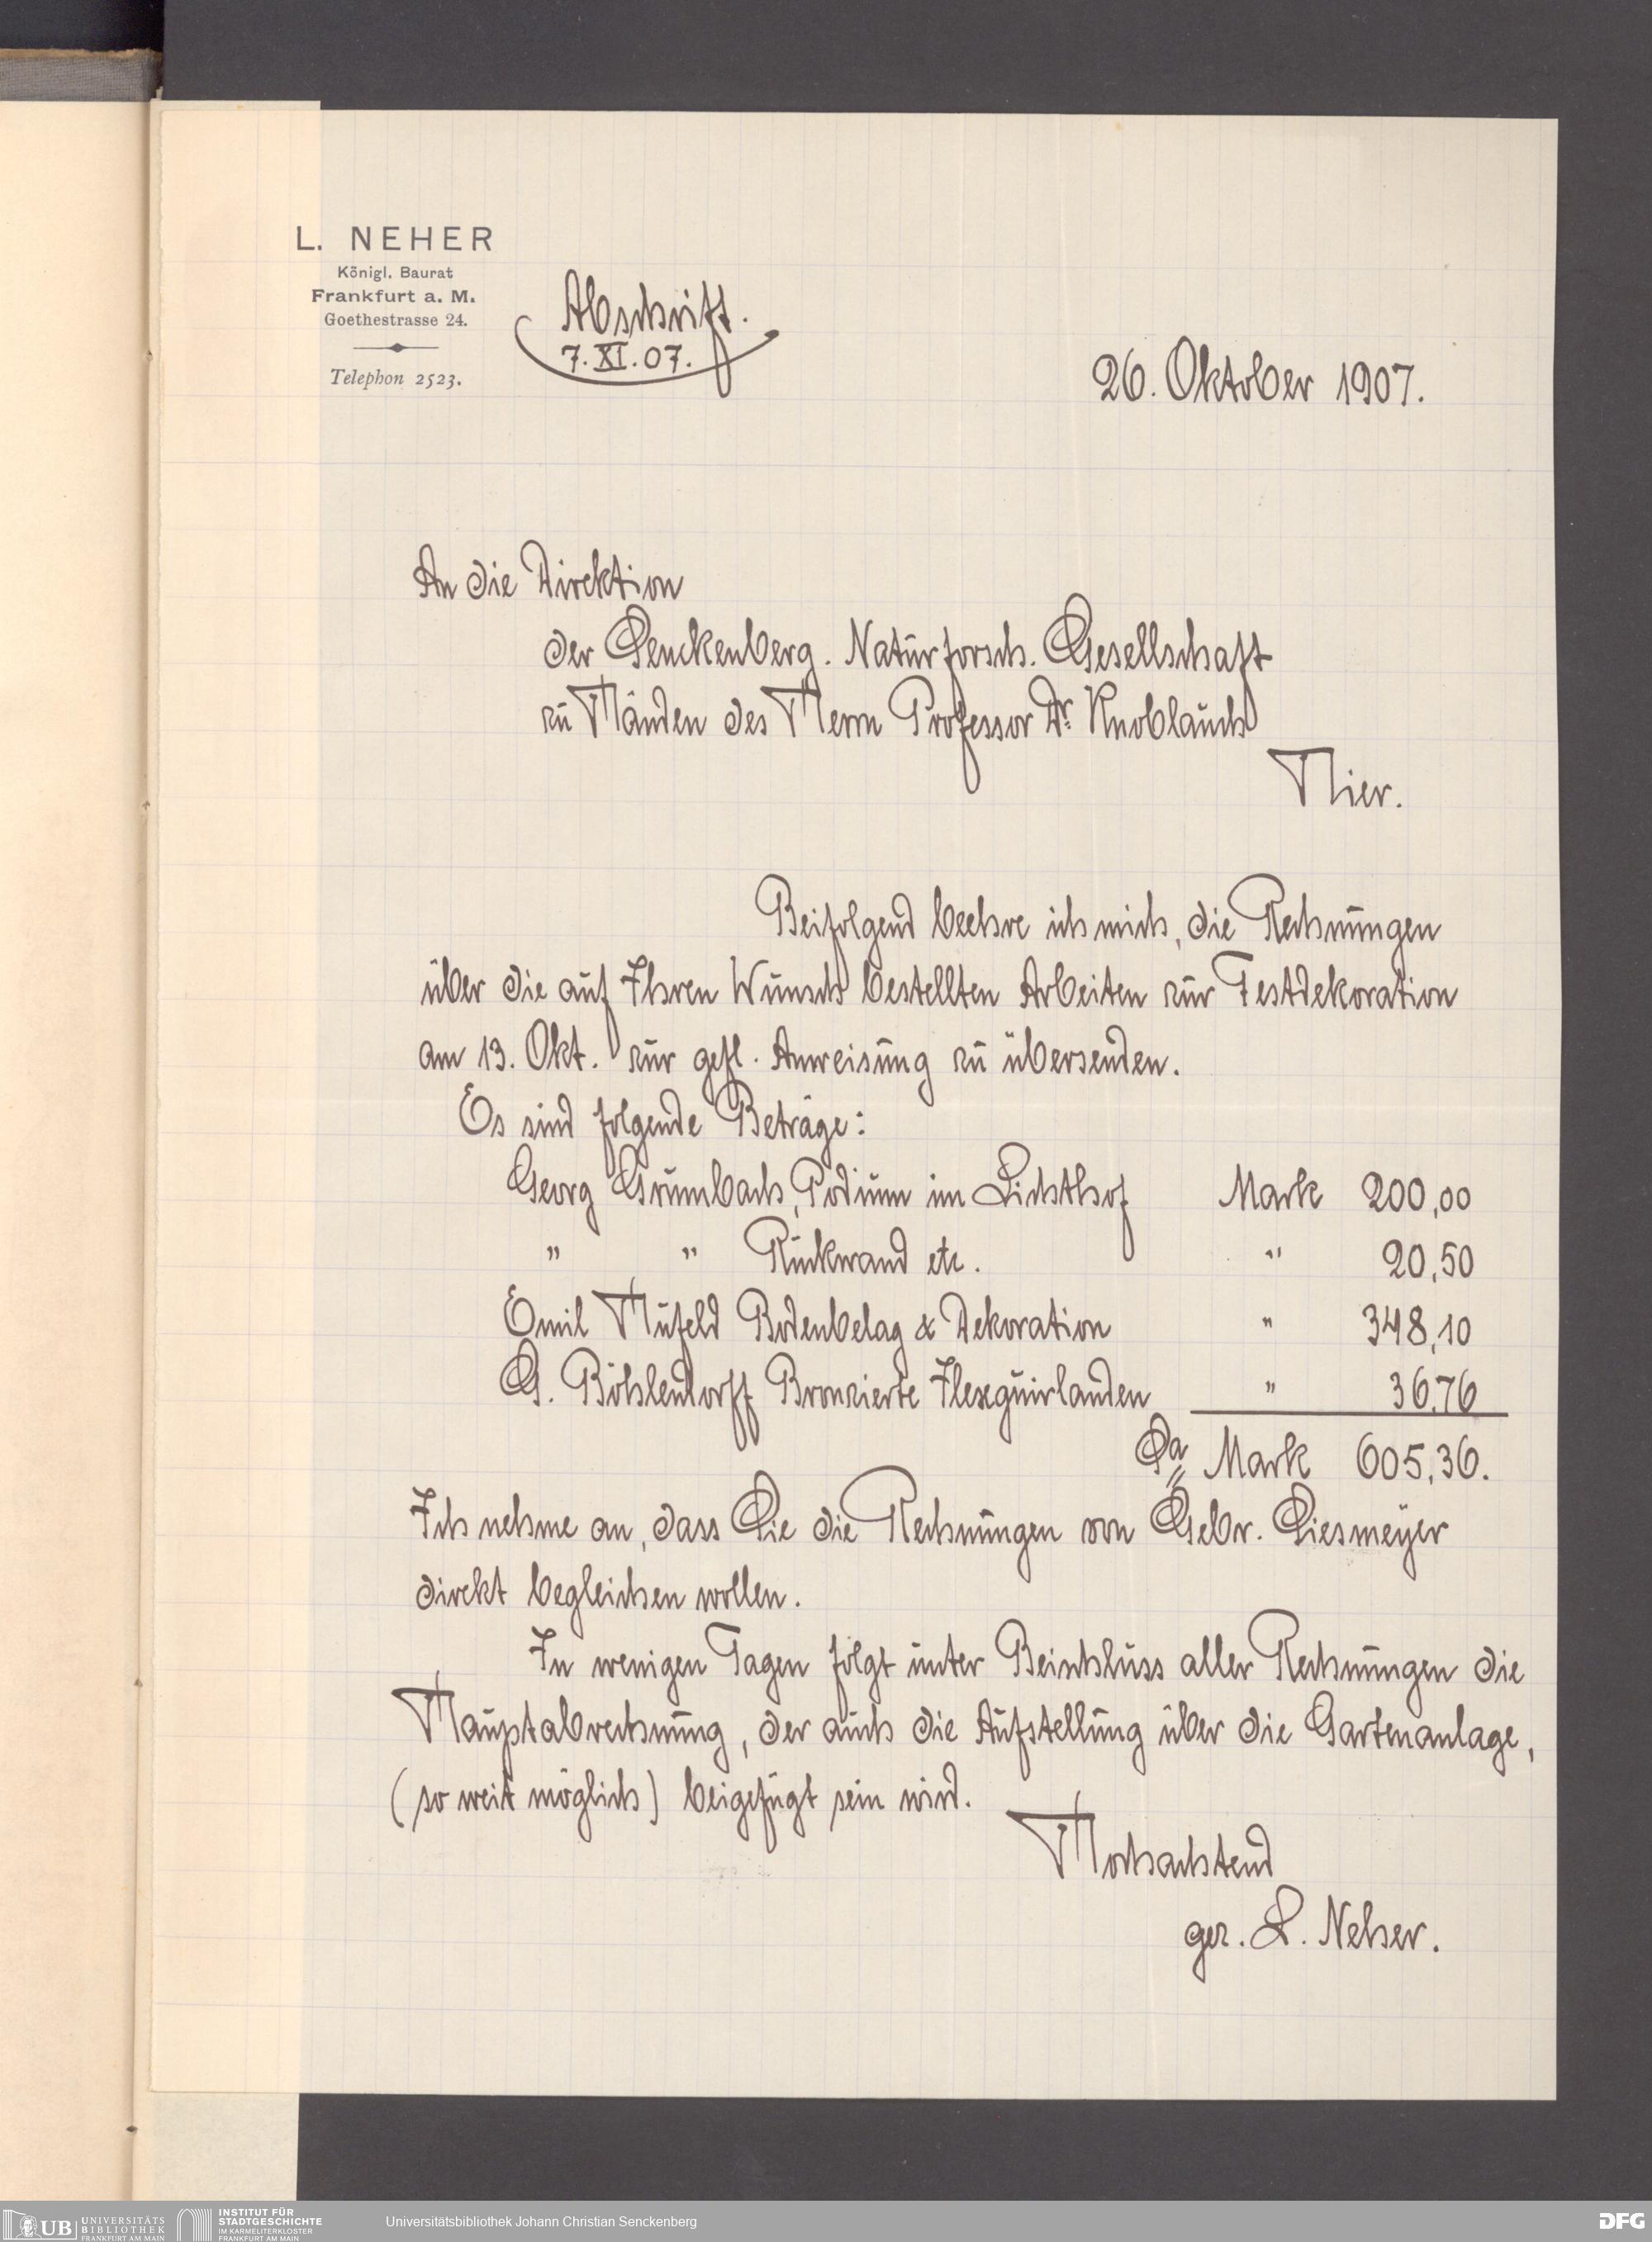 L. NEHER
Königl. Baurat
Frankfurt a. M.
Goethestrasse 24.
Telephon 2523.
Abschrift.
7. XI. 07.
26. Oktober 1907.
An die Direktion
der Senckenberg. Naturforsch. Gesellschaft
zu Händen des Herrn Professor Dr. Knoblauch
Hier.
Beifolgend beehre ich mich, die Rechnungen
über die auf Ihren Wunsch bestellten Arbeiten zur Festdekoration
am 13. Okt. zur gefl. Anweisung zu übersenden.
Es sind folgende Beträge:
Georg Grumbach, Podium im Lichthof Mark 200,00
" " Rückwand etc. " 20,50
Emil Hufeld Bodenbelag & Dekoration " 348,10
G. Böhlendorff Bronzierte Ilexguirlanden " 36,76
Sa Mark 605,36.
Ich nehme an, dass Sie die Rechnungen von Gebr. Siesmeyer
direkt begleichen wollen.
In wenigen Tagen folgt unter Beischluss aller Rechnungen die
Hauptabrechnung, der auch die Aufstellung über die Gartenanlage,
(so weit möglich) beigefügt sein wird.
Hochachtend
gez. L. Neher.
UB UNIVERSITÄTS
BIBLIOTHEK
FRANKFURT AM MAIN
INSTITUT FÜR
STADTGESCHICHTE
IM KARMELITERKLOSTER
FRANKFURT AM MAIN
Universitätsbibliothek Johann Christian Senckenberg
DFG